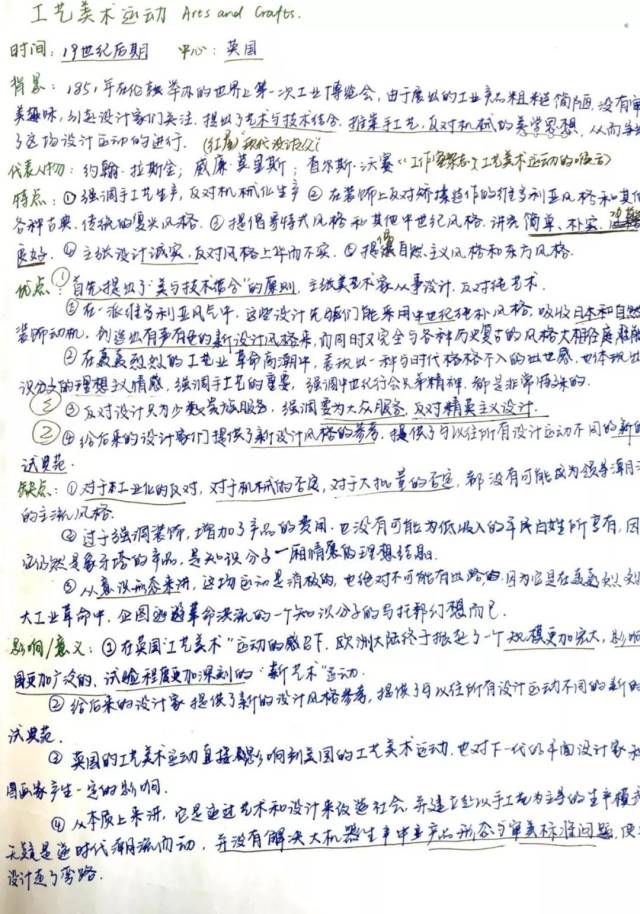 工艺美术运动 Arts and Crafts.
时间: 19世纪后期 中心: 英国
背景: 1851年在伦敦举办的世界上第一次工业博览会, 由于展出的工业产品粗糙简陋, 没有审
美趣味, 引起设计家们关注, 提出了艺术与技术结合, 推崇手工艺, 反对机械的美学思想, 从而导
了这场设计运动的进行. (红屋)"现代设计
代表人物: 约翰·拉斯金; 威廉·莫里斯; 查尔斯·沃赛
特点: ①强调手工艺生产, 反对机械化生产 ②在装饰上反对矫揉造作的维多利亚风格和其他
各种古典、传统的复兴风格. ③提倡哥特式风格和其他中世纪风格, 讲究简单、朴实,
良好. ④主张设计诚实, 反对风格上华而不实. ⑤提倡自然主义风格和东方风格.
优点: ①首先提出了"美与技术结合"的原则, 主张美术家从事设计, 反对纯艺术.
②在一派维多利亚风气中, 这些设计先驱们能采用中世纪纯朴风格, 吸收日本和自然
装饰动机, 创造出有声有色的新设计风格来, 而同时又完全与各种历史复古的风格大相径庭
②在轰轰烈烈的工业革命高潮中, 表现出一种与时代格格不入的出世感, 也体现出
识分子的理想主义情感, 强调手工艺的重要, 强调中世纪行会兄弟精神, 都是非常特殊的.
③反对设计只为少数贵族服务, 强调要为大众服务, 反对精英主义设计.
② ④给后来的设计家们提供了新设计风格的参考, 提供了与以往所有设计运动不同的新的
试典范.
缺点: ①对于工业化的反对, 对于机械的否定, 对于大批量的否定, 都没有可能成为领导潮流
的主流风格.
②过于强调装饰, 增加了产品的费用, 也没有可能为低收入的平民百姓所享有, 因
它仍然是象牙塔的产品, 是知识分子一厢情愿的理想结果.
③从意识形态来讲, 这场运动是消极的, 也绝对不可能有出路的, 因为它是在轰轰烈烈
大工业革命中, 企图逃避革命洪流的一个知识分子的乌托邦幻想而已.
影响/意义: ①在英国"工艺美术"运动的感召下, 欧洲大陆终于掀起了一个规模更加宏大, 影响
围更加广泛的, 试验程度更加深刻的"新艺术"运动.
②给后来的设计家提供了新的设计风格参考, 提供了与以往所有设计运动不同的新的
试典范.
③英国的工艺美术运动直接影响到美国的工艺美术运动, 也对下一代的平面设计家和
画家产生一定的影响.
④从本质上来讲, 它是通过艺术和设计来改造社会, 并建立起以手工艺为主导的生产模式
无疑是逆时代潮流而动, 并没有解决大机器生产中产品形态与审美标准问题, 使
设计走了弯路.